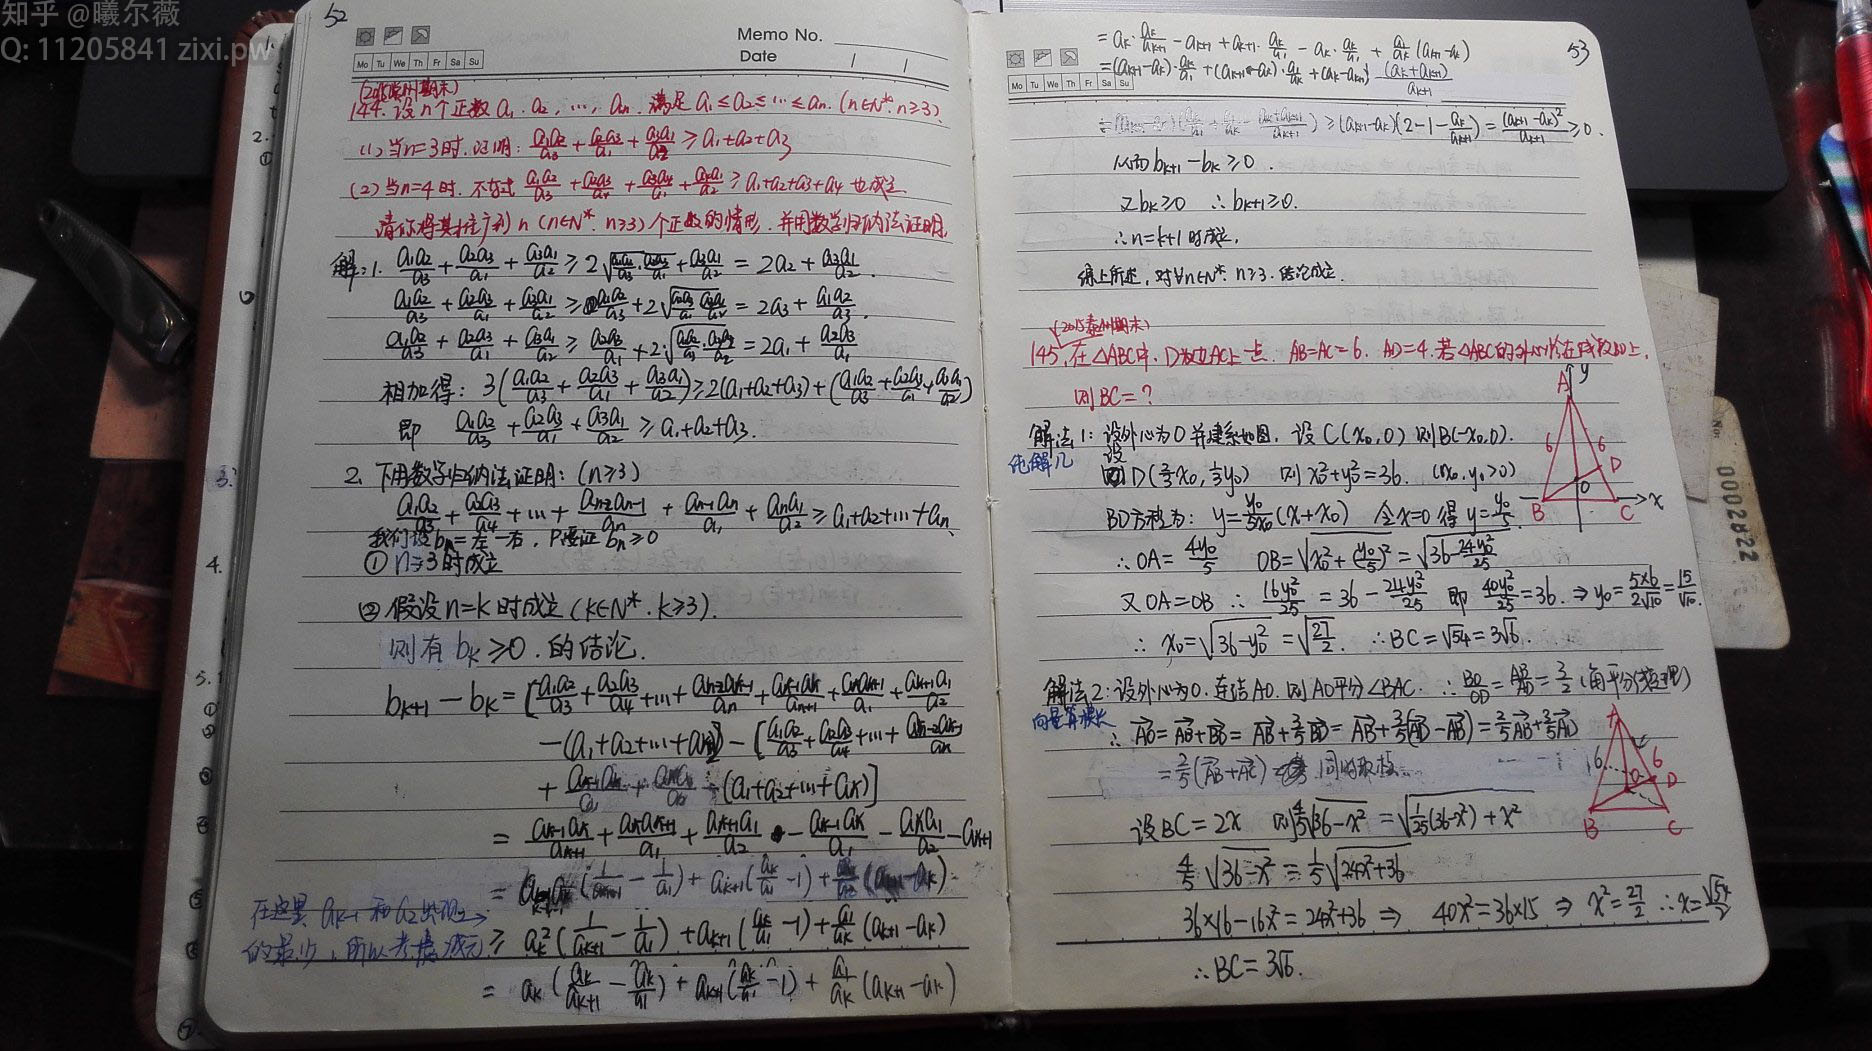 知乎 @曦尔薇
Q: 11205841 zixi.pw
52
Memo No.
Date
Mo Tu We Th Fr Sa Su
144. 设n个正数 a₁, a₂, …, aₙ. 满足 a₁≤a₂≤…≤aₙ. (n∈N*. n≥3).
(1) 当n=3时. 证明: a₁a₂/a₃ + a₂a₃/a₁ + a₃a₁/a₂ ≥ a₁+a₂+a₃
(2) 当n=4时. 不等式 a₁a₂/a₃ + a₂a₃/a₄ + a₃a₄/a₁ + a₄a₁/a₂ ≥ a₁+a₂+a₃+a₄ 也成立.
请你将其推广到 n (n∈N*. n≥3) 个正数的情形. 并用数学归纳法证明.
解: 1. a₁a₂/a₃ + a₂a₃/a₁ + a₃a₁/a₂ ≥ 2√(a₁a₂/a₃·a₂a₃/a₁) + a₃a₁/a₂ = 2a₂ + a₃a₁/a₂.
a₁a₂/a₃ + a₂a₃/a₁ + a₃a₁/a₂ ≥ a₁a₂/a₃ + 2√(a₂a₃/a₁·a₃a₁/a₂) = 2a₃ + a₁a₂/a₃.
a₁a₂/a₃ + a₂a₃/a₁ + a₃a₁/a₂ ≥ a₂a₃/a₁ + 2·√(a₁a₂/a₃·a₃a₁/a₂) = 2a₁ + a₂a₃/a₁
相加得: 3(a₁a₂/a₃ + a₂a₃/a₁ + a₃a₁/a₂) ≥ 2(a₁+a₂+a₃) + (a₁a₂/a₃ + a₂a₃/a₁ + a₃a₁/a₂)
即 a₁a₂/a₃ + a₂a₃/a₁ + a₃a₁/a₂ ≥ a₁+a₂+a₃.
2. 下用数学归纳法证明: (n≥3)
a₁a₂/a₃ + a₂a₃/a₄ + … + aₙ₋₂aₙ₋₁/aₙ + aₙ₋₁aₙ/a₁ + aₙa₁/a₂ ≥ a₁+a₂+…+aₙ
我们设bₙ=左-右, 只要证 bₙ≥0
① n=3时成立
② 假设n=k时成立 (k∈N*. k≥3).
则有 bₖ≥0. 的结论.
bₖ₊₁ - bₖ = [a₁a₂/a₃ + a₂a₃/a₄ + … +
-(a₁+a₂+…+
(a₁+a₂+…+aₖ)]
= aₖ₋₁aₖ/aₖ₊₁ + aₖaₖ₊₁/a₁ + aₖ₊₁a₁/a₂ - aₖ₋₁aₖ/a₁ - aₖa₁/a₂ - aₖ₊₁
= aₖ₋₁aₖ(1/aₖ₊₁ - 1/a₁) + aₖ₊₁(aₖ/a₁ - 1) +
在这里 aₖ₋₁ 和 a₂ 出现
的最少, 所以考虑减元
≥ aₖ²(1/aₖ₊₁ - 1/a₁) + aₖ₊₁(aₖ/a₁ - 1) + a₁/aₖ(aₖ₊₁-aₖ)
= aₖ(aₖ/aₖ₊₁ - aₖ/a₁) + aₖ₊₁(aₖ/a₁ - 1) + a₁/aₖ(aₖ₊₁-aₖ)
53
Mo Tu We Th Fr Sa Su
= aₖ·aₖ/aₖ₊₁ - aₖ₊₁ + aₖ₊₁·aₖ/a₁ - aₖ·aₖ/a₁ + a₁/aₖ(aₖ₊₁-aₖ)
= (aₖ₊₁-aₖ)·aₖ/a₁ + (aₖ₊₁-aₖ)·a₁/aₖ + (aₖ-aₖ₊₁)(aₖ+aₖ₊₁)/aₖ₊₁
≥ (aₖ₊₁-aₖ)(2-1-aₖ/aₖ₊₁) = (aₖ₊₁-aₖ)²/aₖ₊₁ ≥ 0.
从而 bₖ₊₁-bₖ≥0.
又bₖ≥0 ∴ bₖ₊₁≥0.
∴ n=k+1时成立.
综上所述, 对∀n∈N*. n≥3. 结论成立.
(2015泰州期末)
145. 在△ABC中. D为边AC上一点. AB=AC=6. AD=4. 若△ABC的外心恰在线段BD上,
则BC=?
解法1: 设外心为O并建系如图. 设C(x₀,0) 则B(-x₀,0).
纯解几
设D(⅔x₀, ⅓y₀) 则 x₀²+y₀²=36. (x₀, y₀>0)
BD方程为: y = y₀/5x₀(x+x₀) 令x=0得y=y₀/5.
∴ OA=4y₀/5 OB=√(x₀²+(y₀/5)²)=√(36-24y₀²/25)
又OA=OB ∴ 16y₀²/25 = 36-24y₀²/25 即 40y₀²/25=36. ⇒ y₀=5×6/2√10=15/√10.
∴ x₀=√(36-y₀²)=√(27/2). ∴BC=√54=3√6.
A y 6 6 D O B C x
解法2: 设外心为O. 连结AO. 则AO平分∠BAC. ∴ BO/OD=AB/AD=3/2 (角平分线定理)
向量算模长
∴ AO=AB+BO=AB+⅗BD=AB+⅗(AD-AB)=⅖AB+⅗AD
=⅖(AB+AC)
设BC=2x 则⅘√(36-x²)=√(1/25(36-x²)+x²)
⅘√(36-x²)=⅕√(24x²+36)
36×16-16x²=24x²+36 ⇒ 40x²=36×15 ⇒ x²=27/2 ∴x=√54/2
∴BC=3√6.
A 6 6 O D B C
0002822
No: